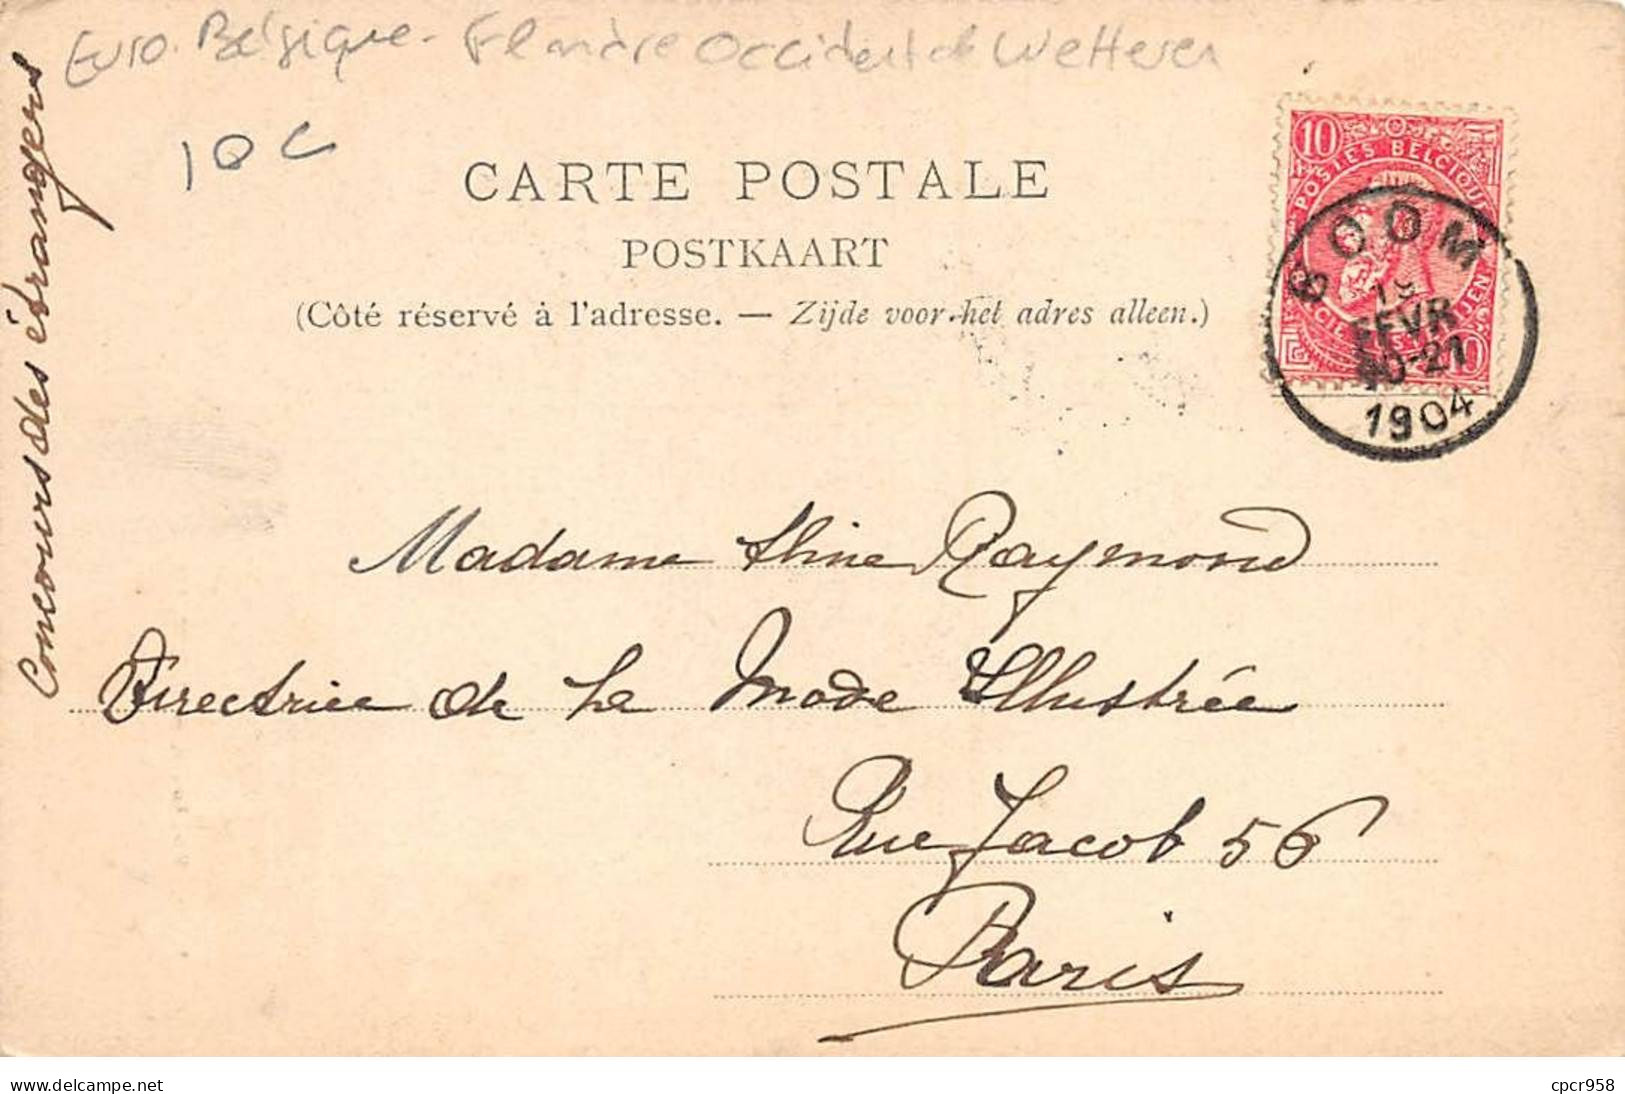 Euro. Belgique - Flandre Occidentale Wetteren
10 C
Concours des étrangers
CARTE POSTALE
POSTKAART
(Côté réservé à l'adresse. — Zijde voor het adres alleen.)
10
POSTES BELGIQUE
BOOM
FEVR
1904
10
Madame Aline Raymond
Directrice de La Mode Illustrée
Rue Jacob 56
Paris
Delcampe.net
cpcr958